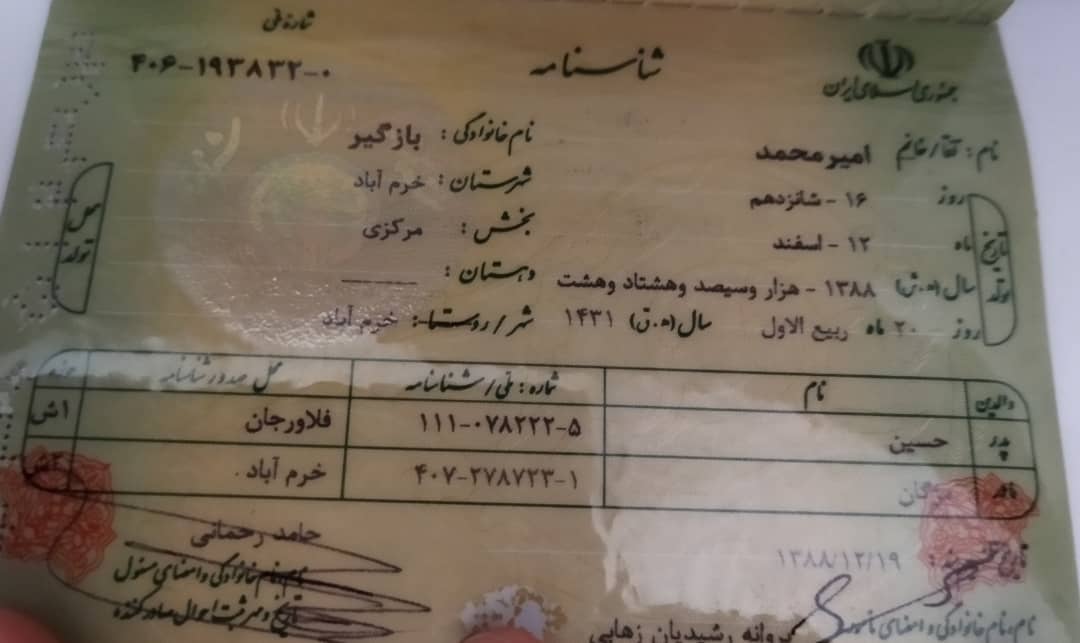 جمهوری اسلامی ایران
شناسنامه
شماره ملی
۴۰۶-۱۹۳۸۳۲-۰
نام: آقا/خانم امیرمحمد
نام خانوادگی: بازگیر
تاریخ تولد
روز ۱۶ - شانزدهم
ماه ۱۲ - اسفند
سال (ه.ش) ۱۳۸۸ - هزار وسیصد وهشتاد وهشت
روز ۲۰ ماه ربیع الاول سال (ه.ق) ۱۴۳۱
محل تولد
شهرستان: خرم آباد
بخش: مرکزی
دهستان: ــــــــ
شهر/روستا: خرم آباد
والدین نام شماره: ملی/شناسنامه محل صدور شناسنامه
پدر حسین ۱۱۱-۰۷۸۲۲۲-۵ فلاورجان اش
مادر ۴۰۷-۲۷۸۷۲۳-۱ خرم آباد
۱۳۸۸/۱۲/۱۹
حامد رحمانی
نام، نام خانوادگی و امضای مسئول
رشیدیان زهایی
نام، نام خانوادگی و امضای